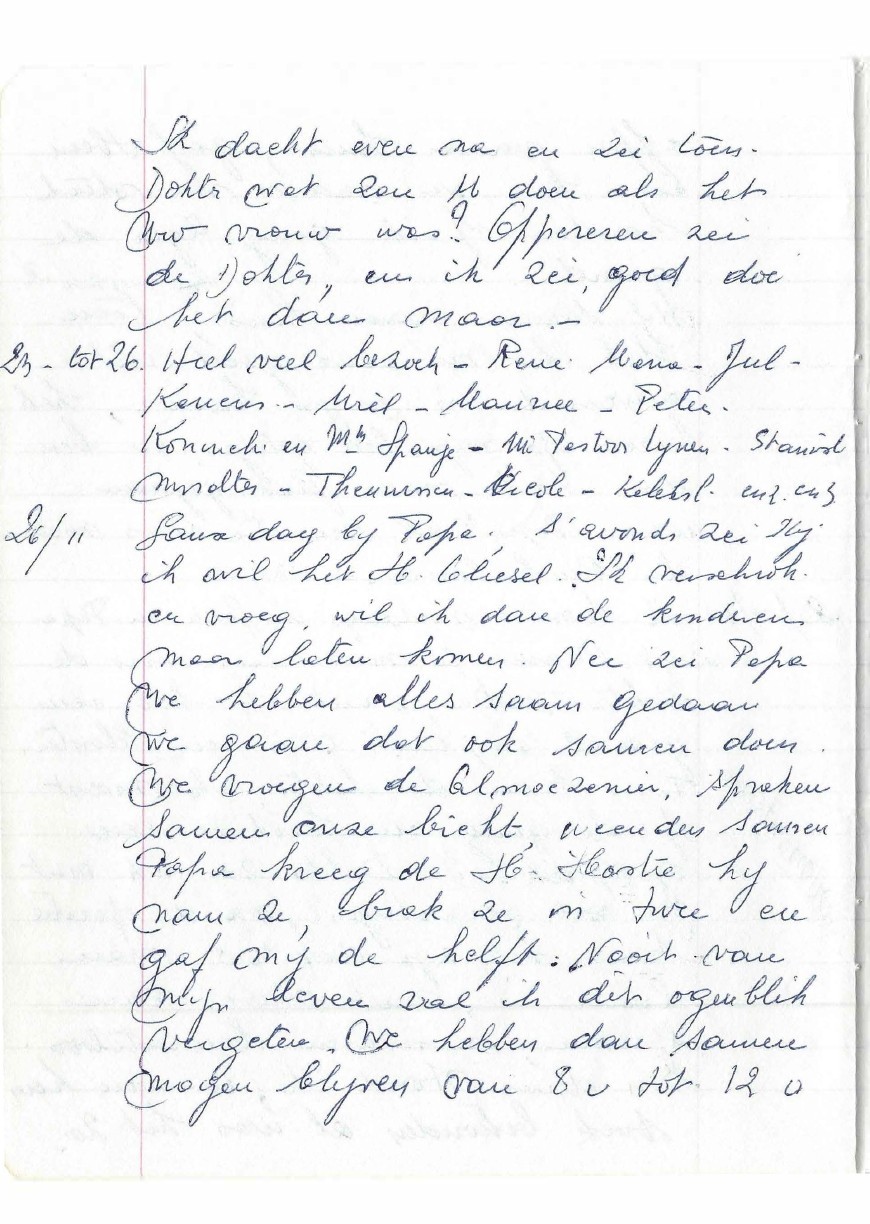 Ik dacht even na en zei toen.
Dokter wat zou U doen als het
Uw vrouw was? Oppereren zei
de Dokter, en ik zei, goed doe
het dan maar. -
23 - tot 26. Heel veel bezoek - René Maria - Jul -
- Maurice - Peter.
en Spanje - Pastoor Lynen - Stanisl
Theunissen - Nicole - enz. enz
26/11 Ganse dag by Papa, s'avonds zei Hij
ik wil het H. Oliesel. Ik verschrok.
en vroeg, wil ik dan de kinderen
maar laten komen. Nee zei Papa
We hebben alles saam gedaan
we gaan dat ook samen doen.
We vroegen de Almoezenier, spraken
samen onze biecht, weenden samen
Papa kreeg de H. Hostie hy
nam ze, brak ze in twee en
gaf mij de helft. Nooit van
mijn leven zal ik dit ogenblik
vergeten. We hebben dan samen
mogen blyven van 8 u tot 12 u